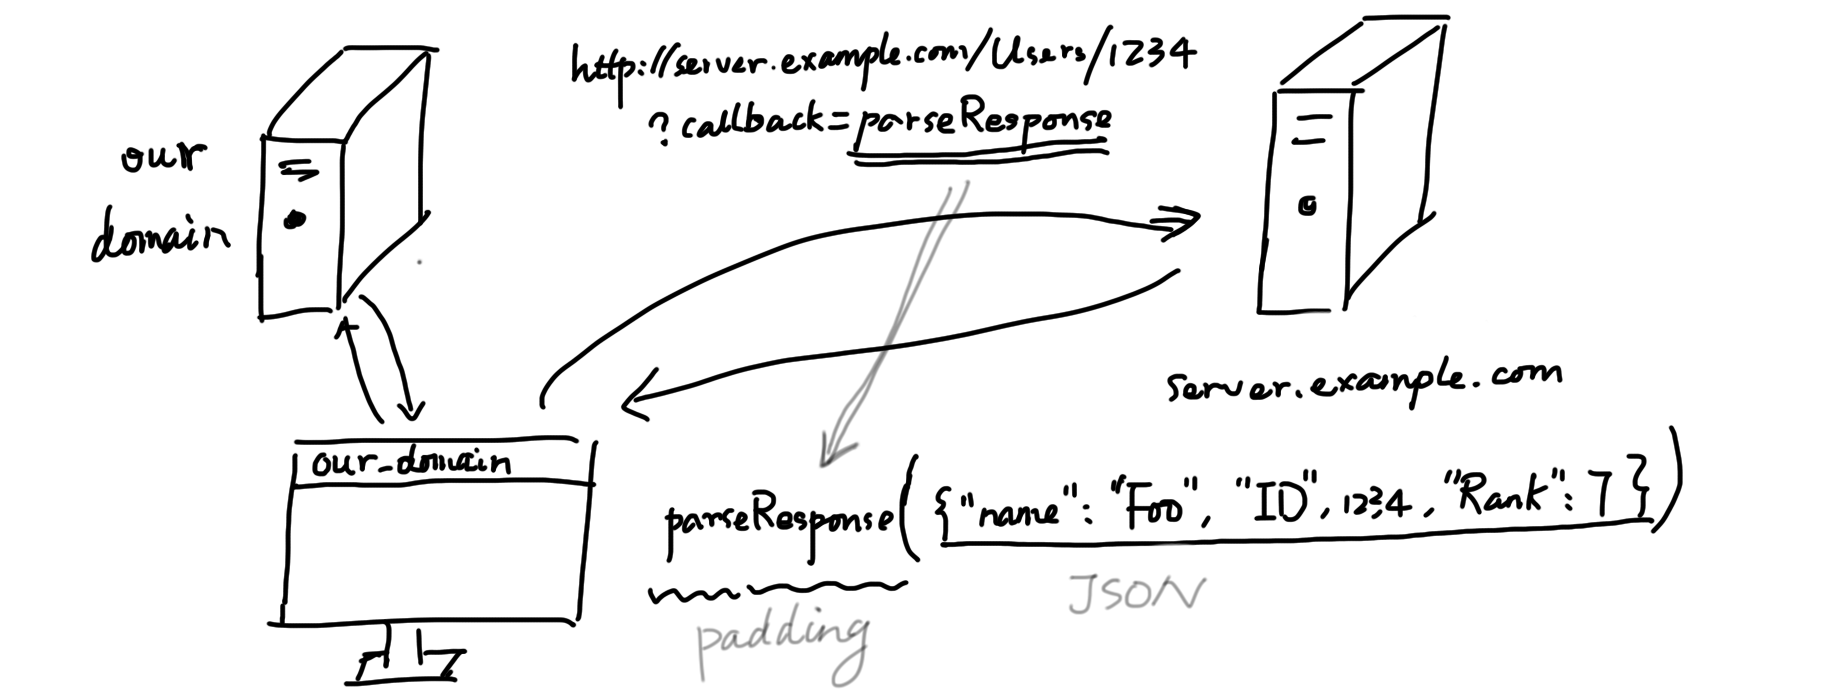 our
domain
http://server.example.com/Users/1234
?callback=parseResponse
server.example.com
our-domain
parseResponse({"name": "Foo", "ID", 1234, "Rank": 7})
padding
JSON